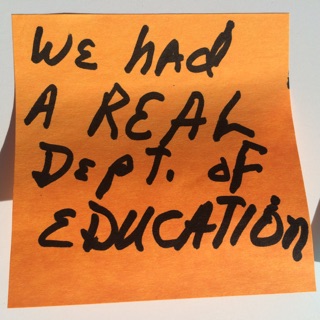 WE hAd
A REAL
DEpt. oF
EDUCATIOn